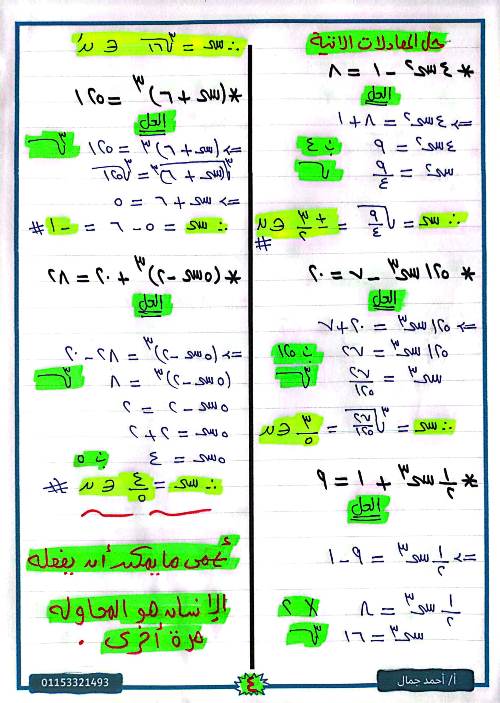 حل المعادلات الآتية
* ٤س٢ - ١ = ٨
الحل
=> ٤س٢ = ٨ + ١
٤س٢ = ٩ ÷ ٤
س٢ = ٩/٤ √
∴ س = √٩/٤ = ± ٣/٢ ∈ ن #
* ١٢٥س٣ - ٧ = ٢٠
الحل
=> ١٢٥س٣ = ٢٠ + ٧
١٢٥س٣ = ٢٧ ÷ ١٢٥
س٣ = ٢٧/١٢٥ ∛
∴ س = ∛٢٧/١٢٥ = ٣/٥ ∈ ن
* ١/٢ س٣ + ١ = ٩
الحل
=> ١/٢ س٣ = ٩ - ١
١/٢ س٣ = ٨ × ٢
س٣ = ١٦ ∛
∴ س = ∛١٦ ∈ نَ
* (س + ٦)٣ = ١٢٥
الحل
=> (س + ٦)٣ = ١٢٥ ∛
∛(س + ٦)٣ = ∛١٢٥
=> س + ٦ = ٥
∴ س = ٥ - ٦ = -١ #
* (٥س - ٢)٣ + ٢٠ = ٢٨
الحل
=> (٥س - ٢)٣ = ٢٨ - ٢٠
(٥س - ٢)٣ = ٨ ∛
٥س - ٢ = ٢
٥س = ٢ + ٢
٥س = ٤ ÷ ٥
∴ س = ٤/٥ ∈ ن #
ما يمكن أن يفعله
الإنسان هو المحاولة
مرة أخرى .
01153321493
٤
أ/ أحمد جمال